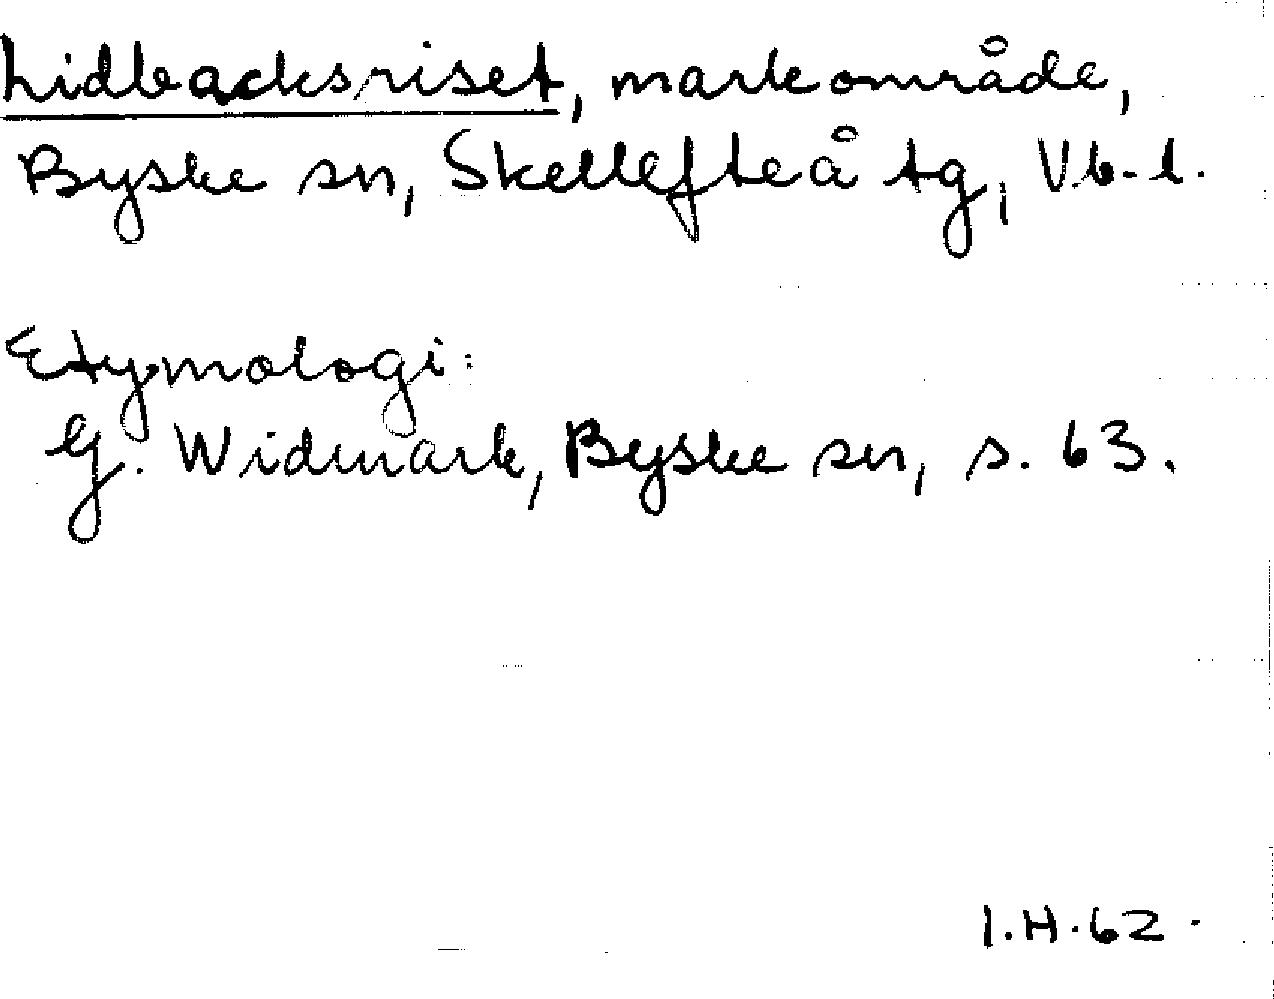 Lidbacksriset, markområde,
Byske sn, Skellefteå tg, Vb. l.
Etymologi:
G. Widmark, Byske sn, s. 63.
I.H. 62.